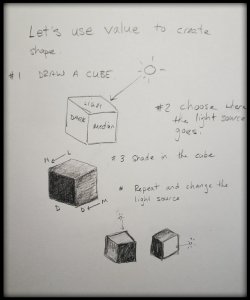 Let's use value to create
shape.
#1 DRAW A CUBE.
LIGHT
DARK
Medium
#2 choose where
the light source
goes.
M
L
#3 Shade in the cube
D
D
M
* Repeat and change the
light source